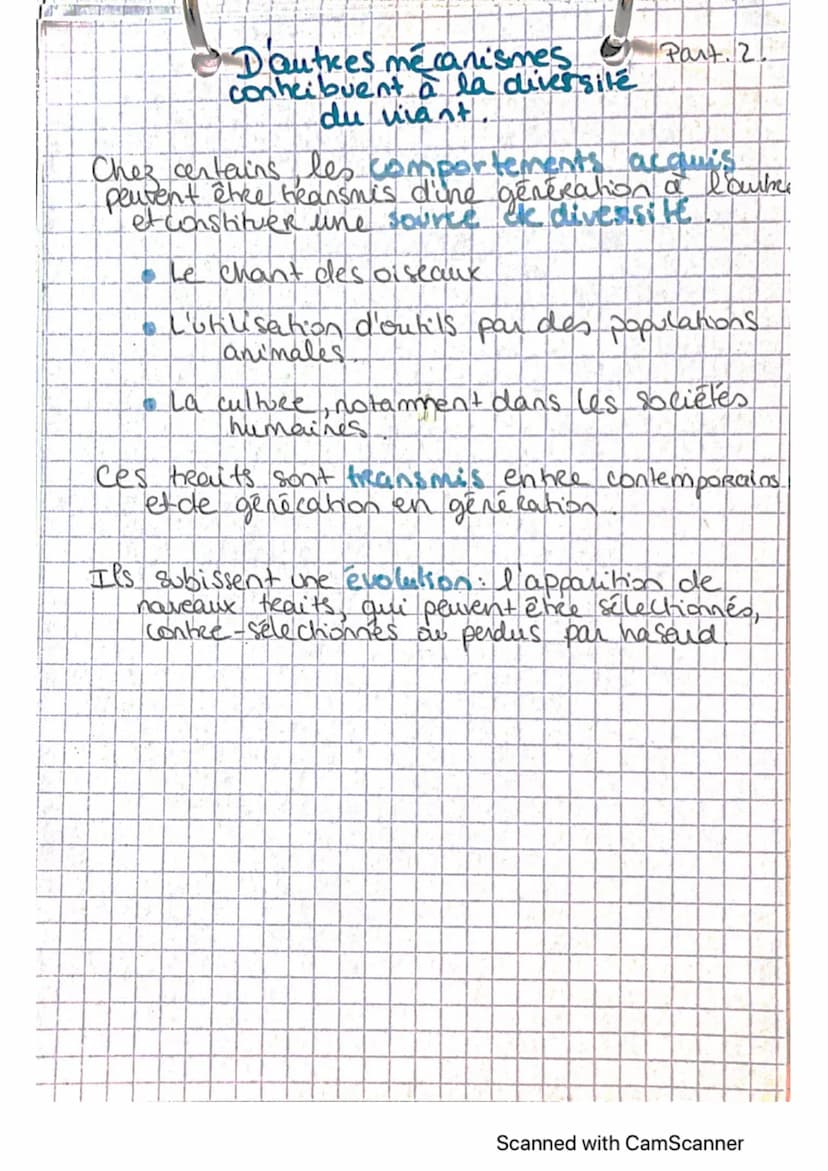 D'autres mécanismes Part. 2.
contribuent à la diversité
du vivant.
Chez certains, les comportements acquis
peuvent être transmis d'une génération à l'autre
et constituer une source de diversité.
• Le chant des oiseaux
• L'utilisation d'outils par des populations
animales.
• La culture, notamment dans les sociétés
humaines.
Ces traits sont transmis entre contemporains
et de génération en génération.
Ils subissent une évolution: l'apparition de
nouveaux traits, qui peuvent être sélectionnés,
contre-sélectionnés ou perdus par hasard.
Scanned with CamScanner